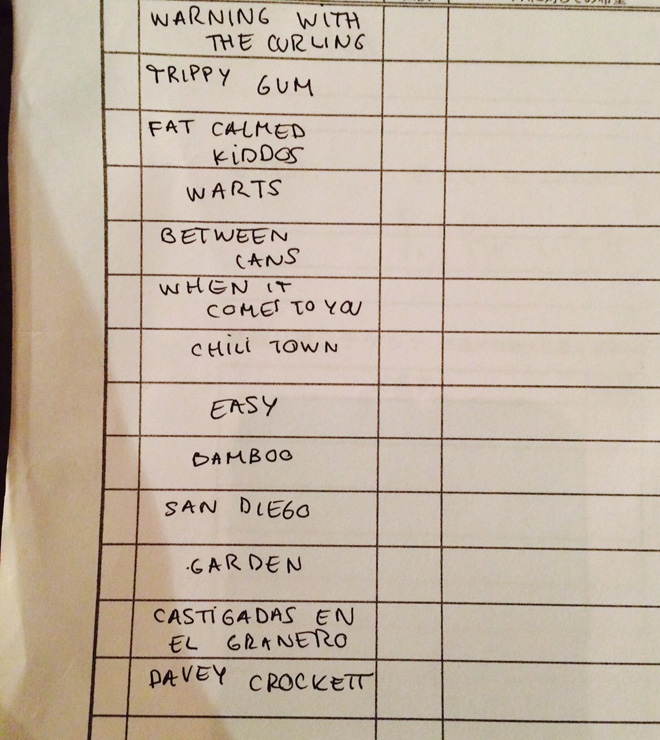 WARNING WITH
THE CURLING
TRIPPY GUM
FAT CALMED
KIDDOS
WARTS
BETWEEN
CANS
WHEN IT
COMES TO YOU
CHILI TOWN
EASY
BAMBOO
SAN DIEGO
GARDEN
CASTIGADAS EN
EL GRANERO
DAVEY CROCKETT